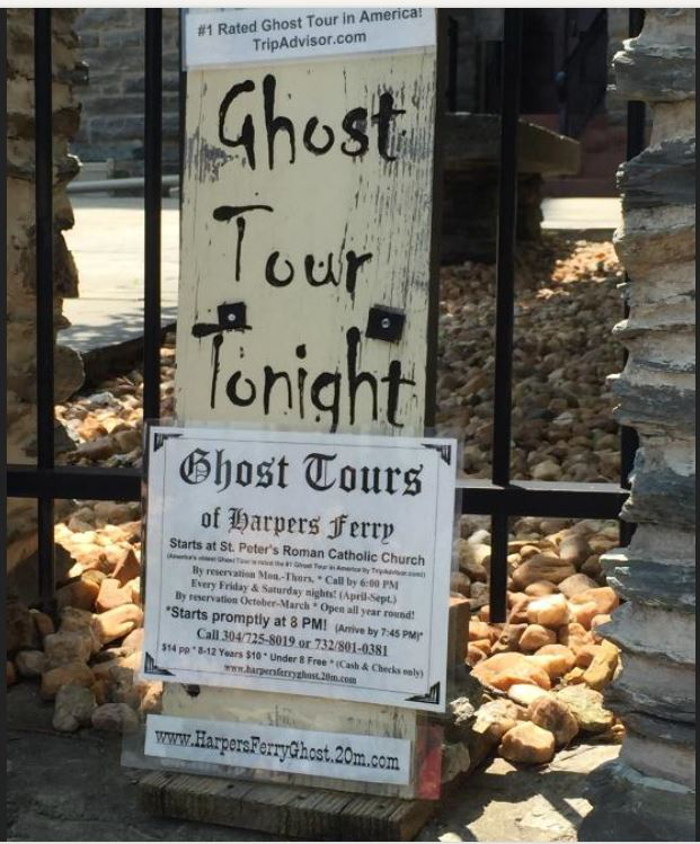 #1 Rated Ghost Tour in America!
TripAdvisor.com
Ghost
Tour
Tonight
Ghost Tours
of Harpers Ferry
Starts at St. Peter's Roman Catholic Church
(America's oldest Ghost Tour is rated the #1 Ghost Tour in America by TripAdvisor.com!)
By reservation Mon.-Thurs. * Call by 6:00 PM
Every Friday & Saturday nights! (April-Sept.)
By reservation October-March * Open all year round!
*Starts promptly at 8 PM! (Arrive by 7:45 PM)*
Call 304/725-8019 or 732/801-0381
$14 pp * 8-12 Years $10 * Under 8 Free * (Cash & Checks only)
www.harpersferryghost.20m.com
www.HarpersFerryGhost.20m.com